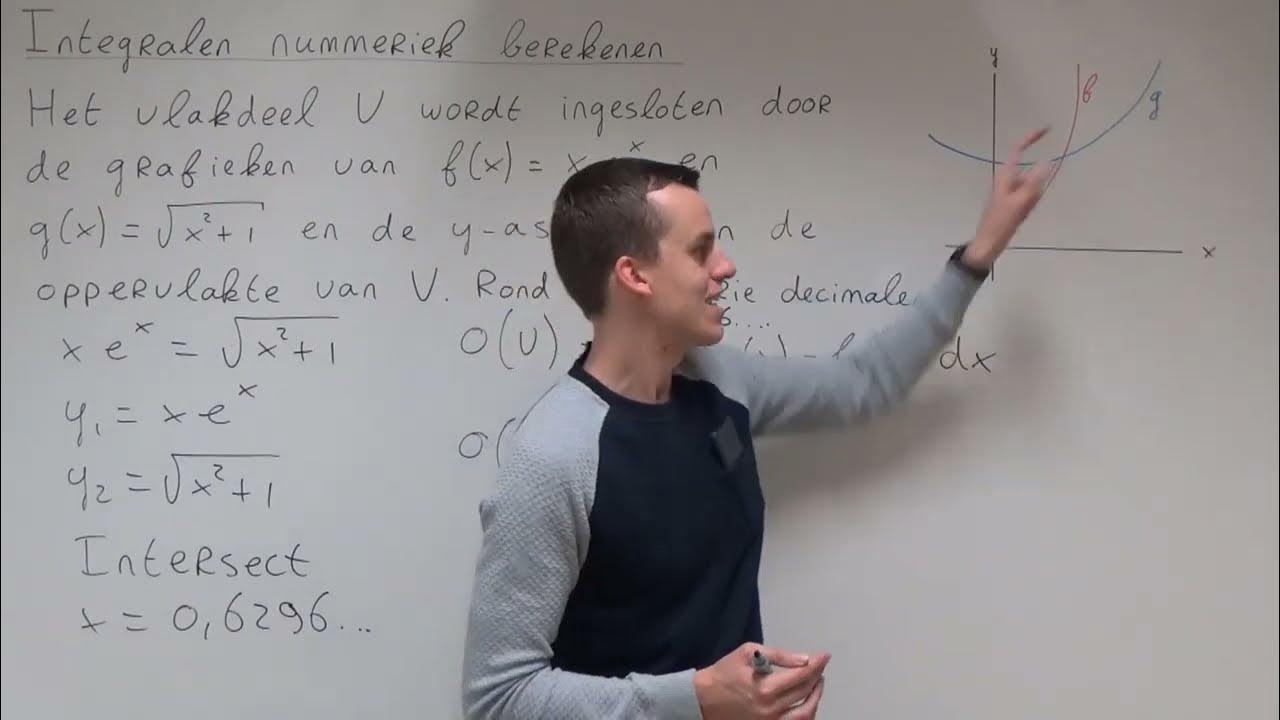 Integralen nummeriek berekenen
Het vlakdeel V wordt ingesloten door
de grafieken van f(x) = x e^x en
g(x) = √(x²+1) en de y-as de
oppervlakte van V. Rond decimale
x e^x = √(x²+1)
y₁ = x e^x
y₂ = √(x²+1)
Intersect
x = 0,6296...
O(V)
dx
O(
y
f
g
x